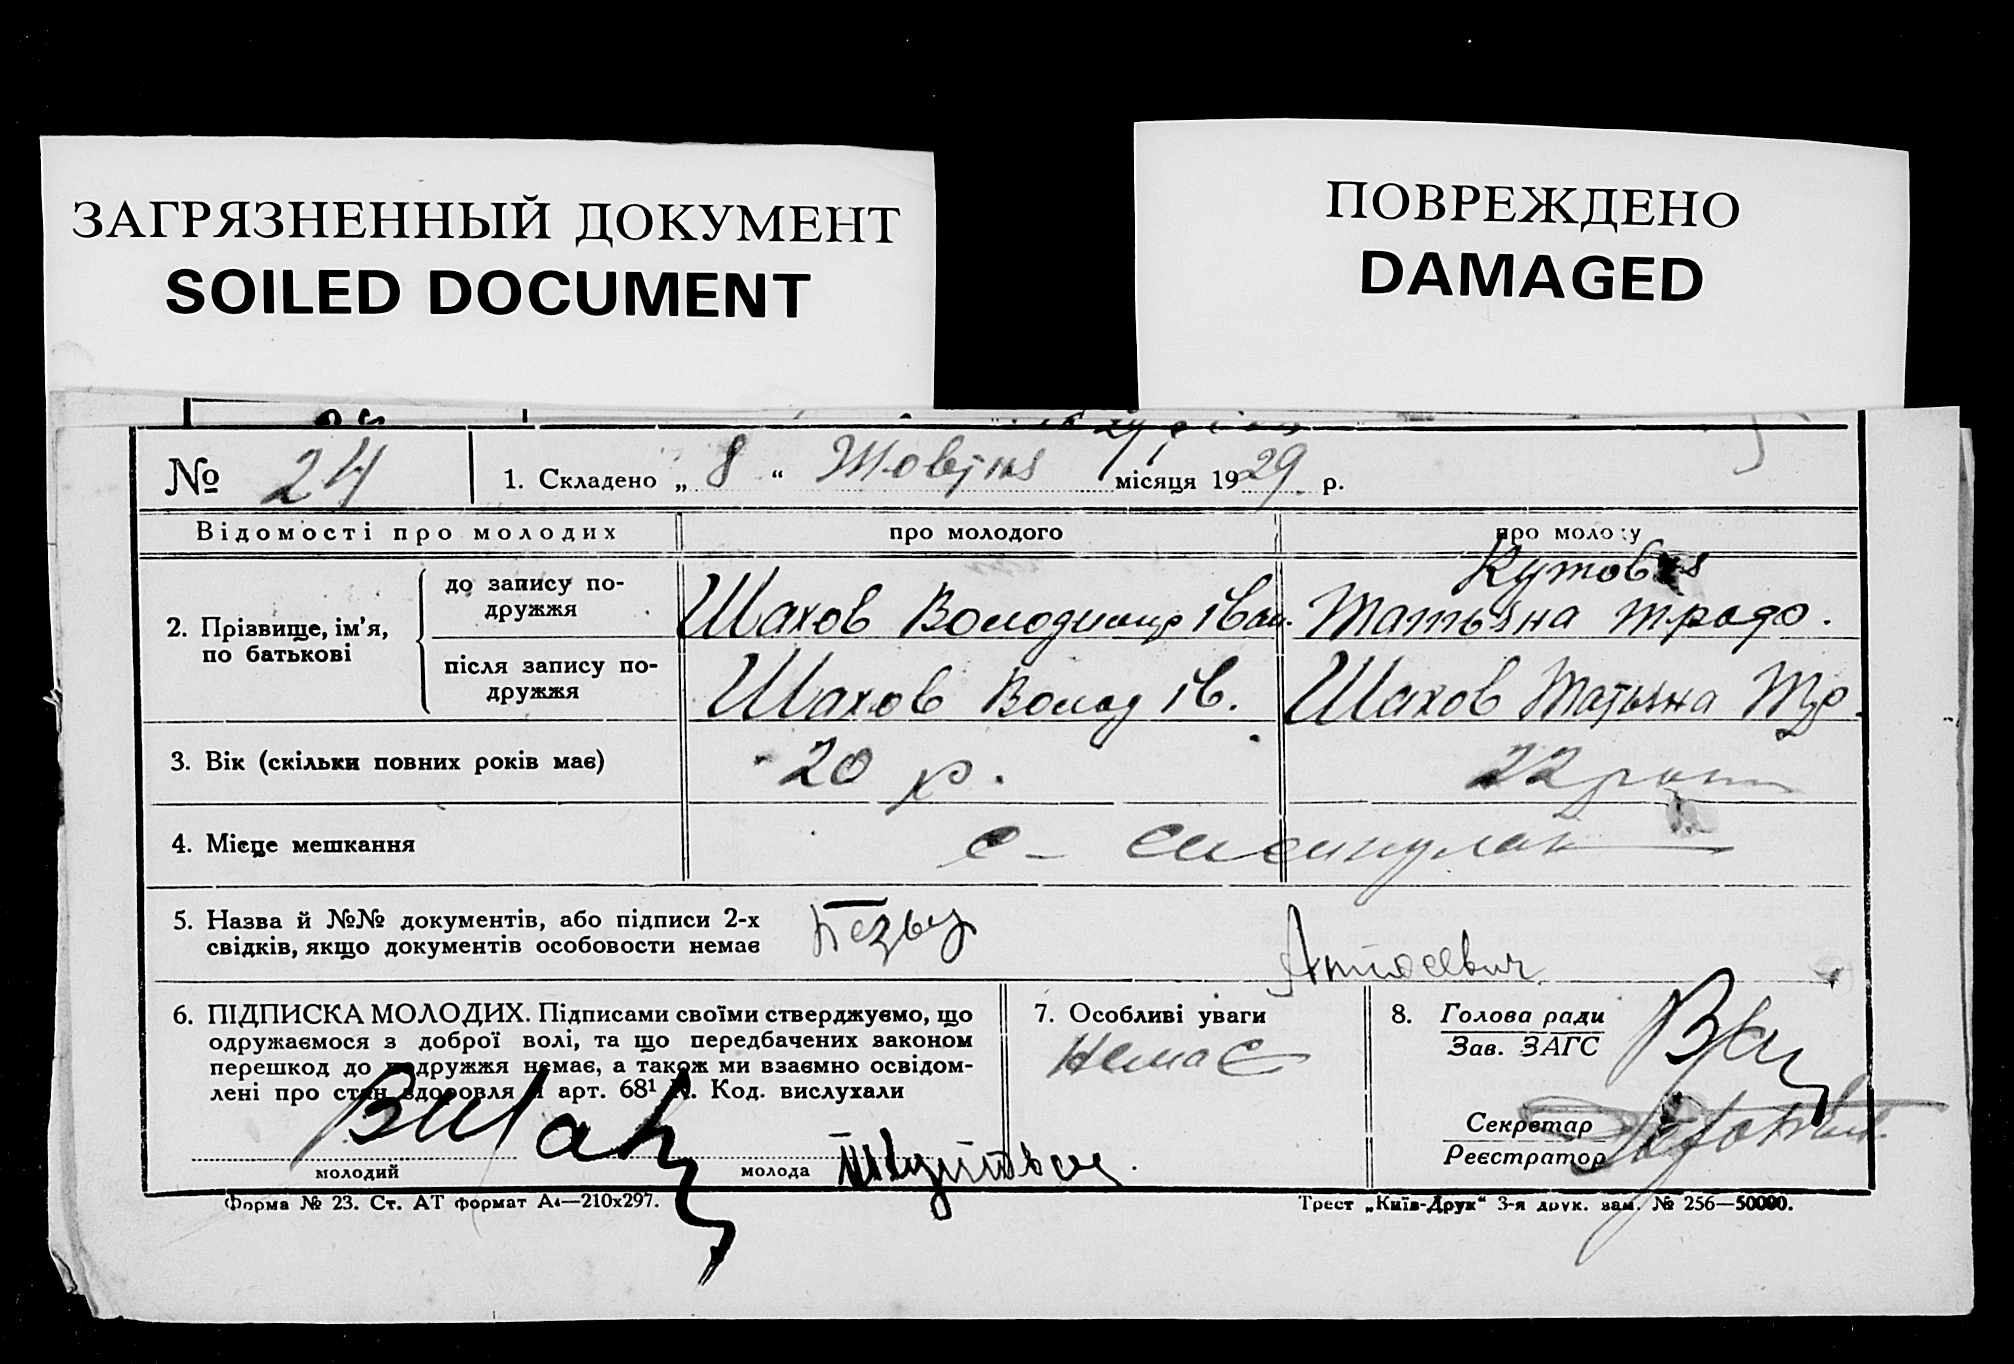 ЗАГРЯЗНЕННЫЙ ДОКУМЕНТ
SOILED DOCUMENT
ПОВРЕЖДЕНО
DAMAGED
№ 24
1. Складено „ 8 “ Жовтня місяця 1929 р.
Відомості про молодих
про молодого
про молоду
2. Прізвище, ім'я, по батькові
до запису подружжя
Шахов Володимир Іван.
Кутовая
Татьяна Традо.
після запису подружжя
Шахов Волод Ів.
Шахов Татьяна Тр.
3. Вік (скільки повних років має)
20 р.
22
4. Місце мешкання
с-
5. Назва й №№ документів, або підписи 2-х
свідків, якщо документів особовости немає
6. ПІДПИСКА МОЛОДИХ. Підписами своїми стверджуємо, що
одружаємося з доброї волі, та що передбачених законом
перешкод до подружжя немає, а також ми взаємно освідом-
лені про стан здоровля й арт. 68¹ К. Код. вислухали
молодий
молода
7. Особливі уваги
немає
8. Голова ради
Зав. ЗАГС
Секретар
Реєстратор
Форма № 23. Ст. АТ формат А4—210х297.
Трест „Київ-Друк“ 3-я друк. зам. № 256—50000.